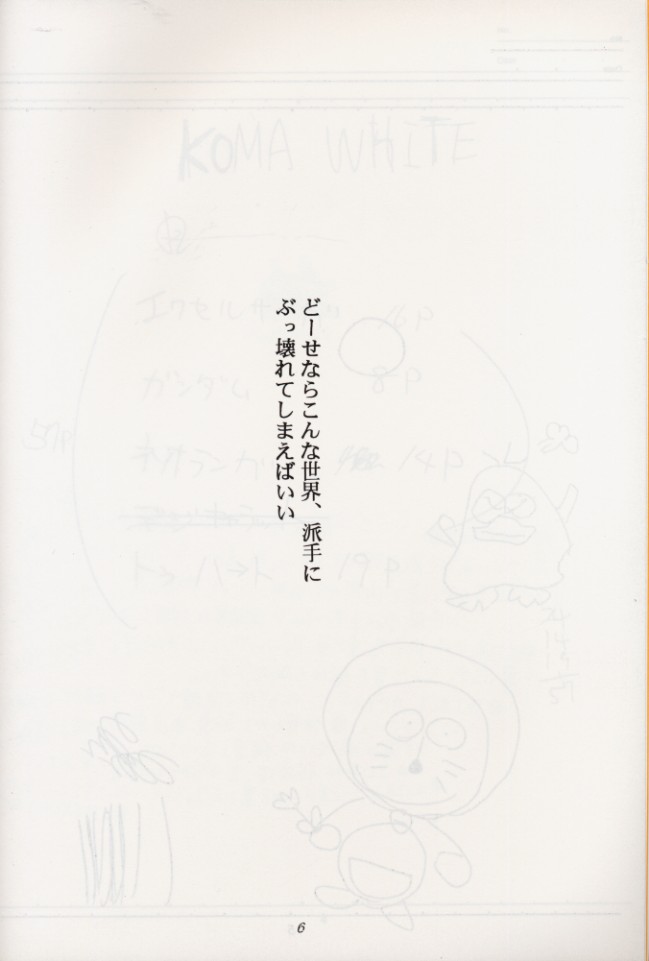 KOMA WHITE
エクセルサーガ 16P
ガンダム 8P
14P
トゥハート 19P
57P
どーせならこんな世界、派手に
ぶっ壊れてしまえばいい
6